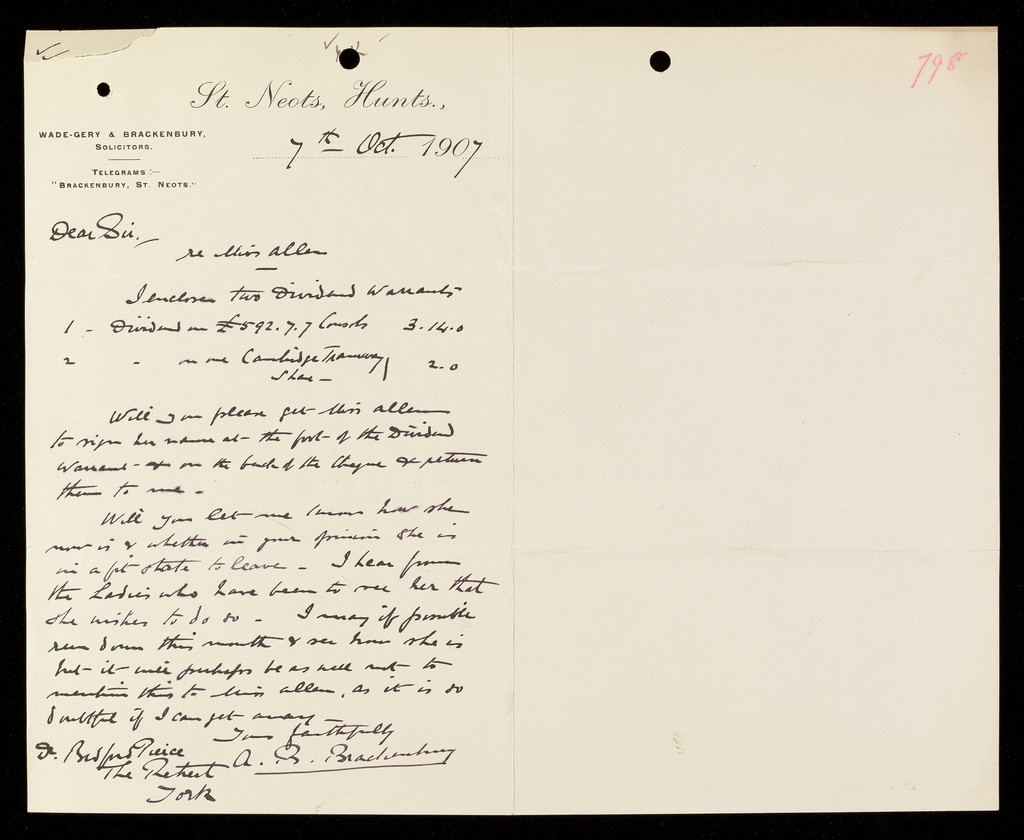 798
St. Neots, Hunts.,
WADE-GERY & BRACKENBURY,
SOLICITORS.
TELEGRAMS :—
"BRACKENBURY, ST. NEOTS."
7th Oct. 1907
Dear Sir,
re Miss Allen
I enclose two Dividend Warrants
1 - Dividend on £592.7.7 Consols 3.14.0
2 - on one Cambridge Tramway
Share - 2.0
Will you please get Miss Allen
to sign her name at the foot of the Dividend
Warrant & on the back of the Cheque & return
them to me -
Will you let me know how she
now is & whether in your opinion she is
in a fit state to leave - I hear from
the Ladies who have been to see her that
she wishes to do so - I may if possible
run down this month & see how she is
but it will perhaps be as well not to
mention this to Miss Allen, as it is so
doubtful if I can get away -
Yours faithfully
A. B. Brackenbury
Dr. Bedford Pierce
The Retreat
York